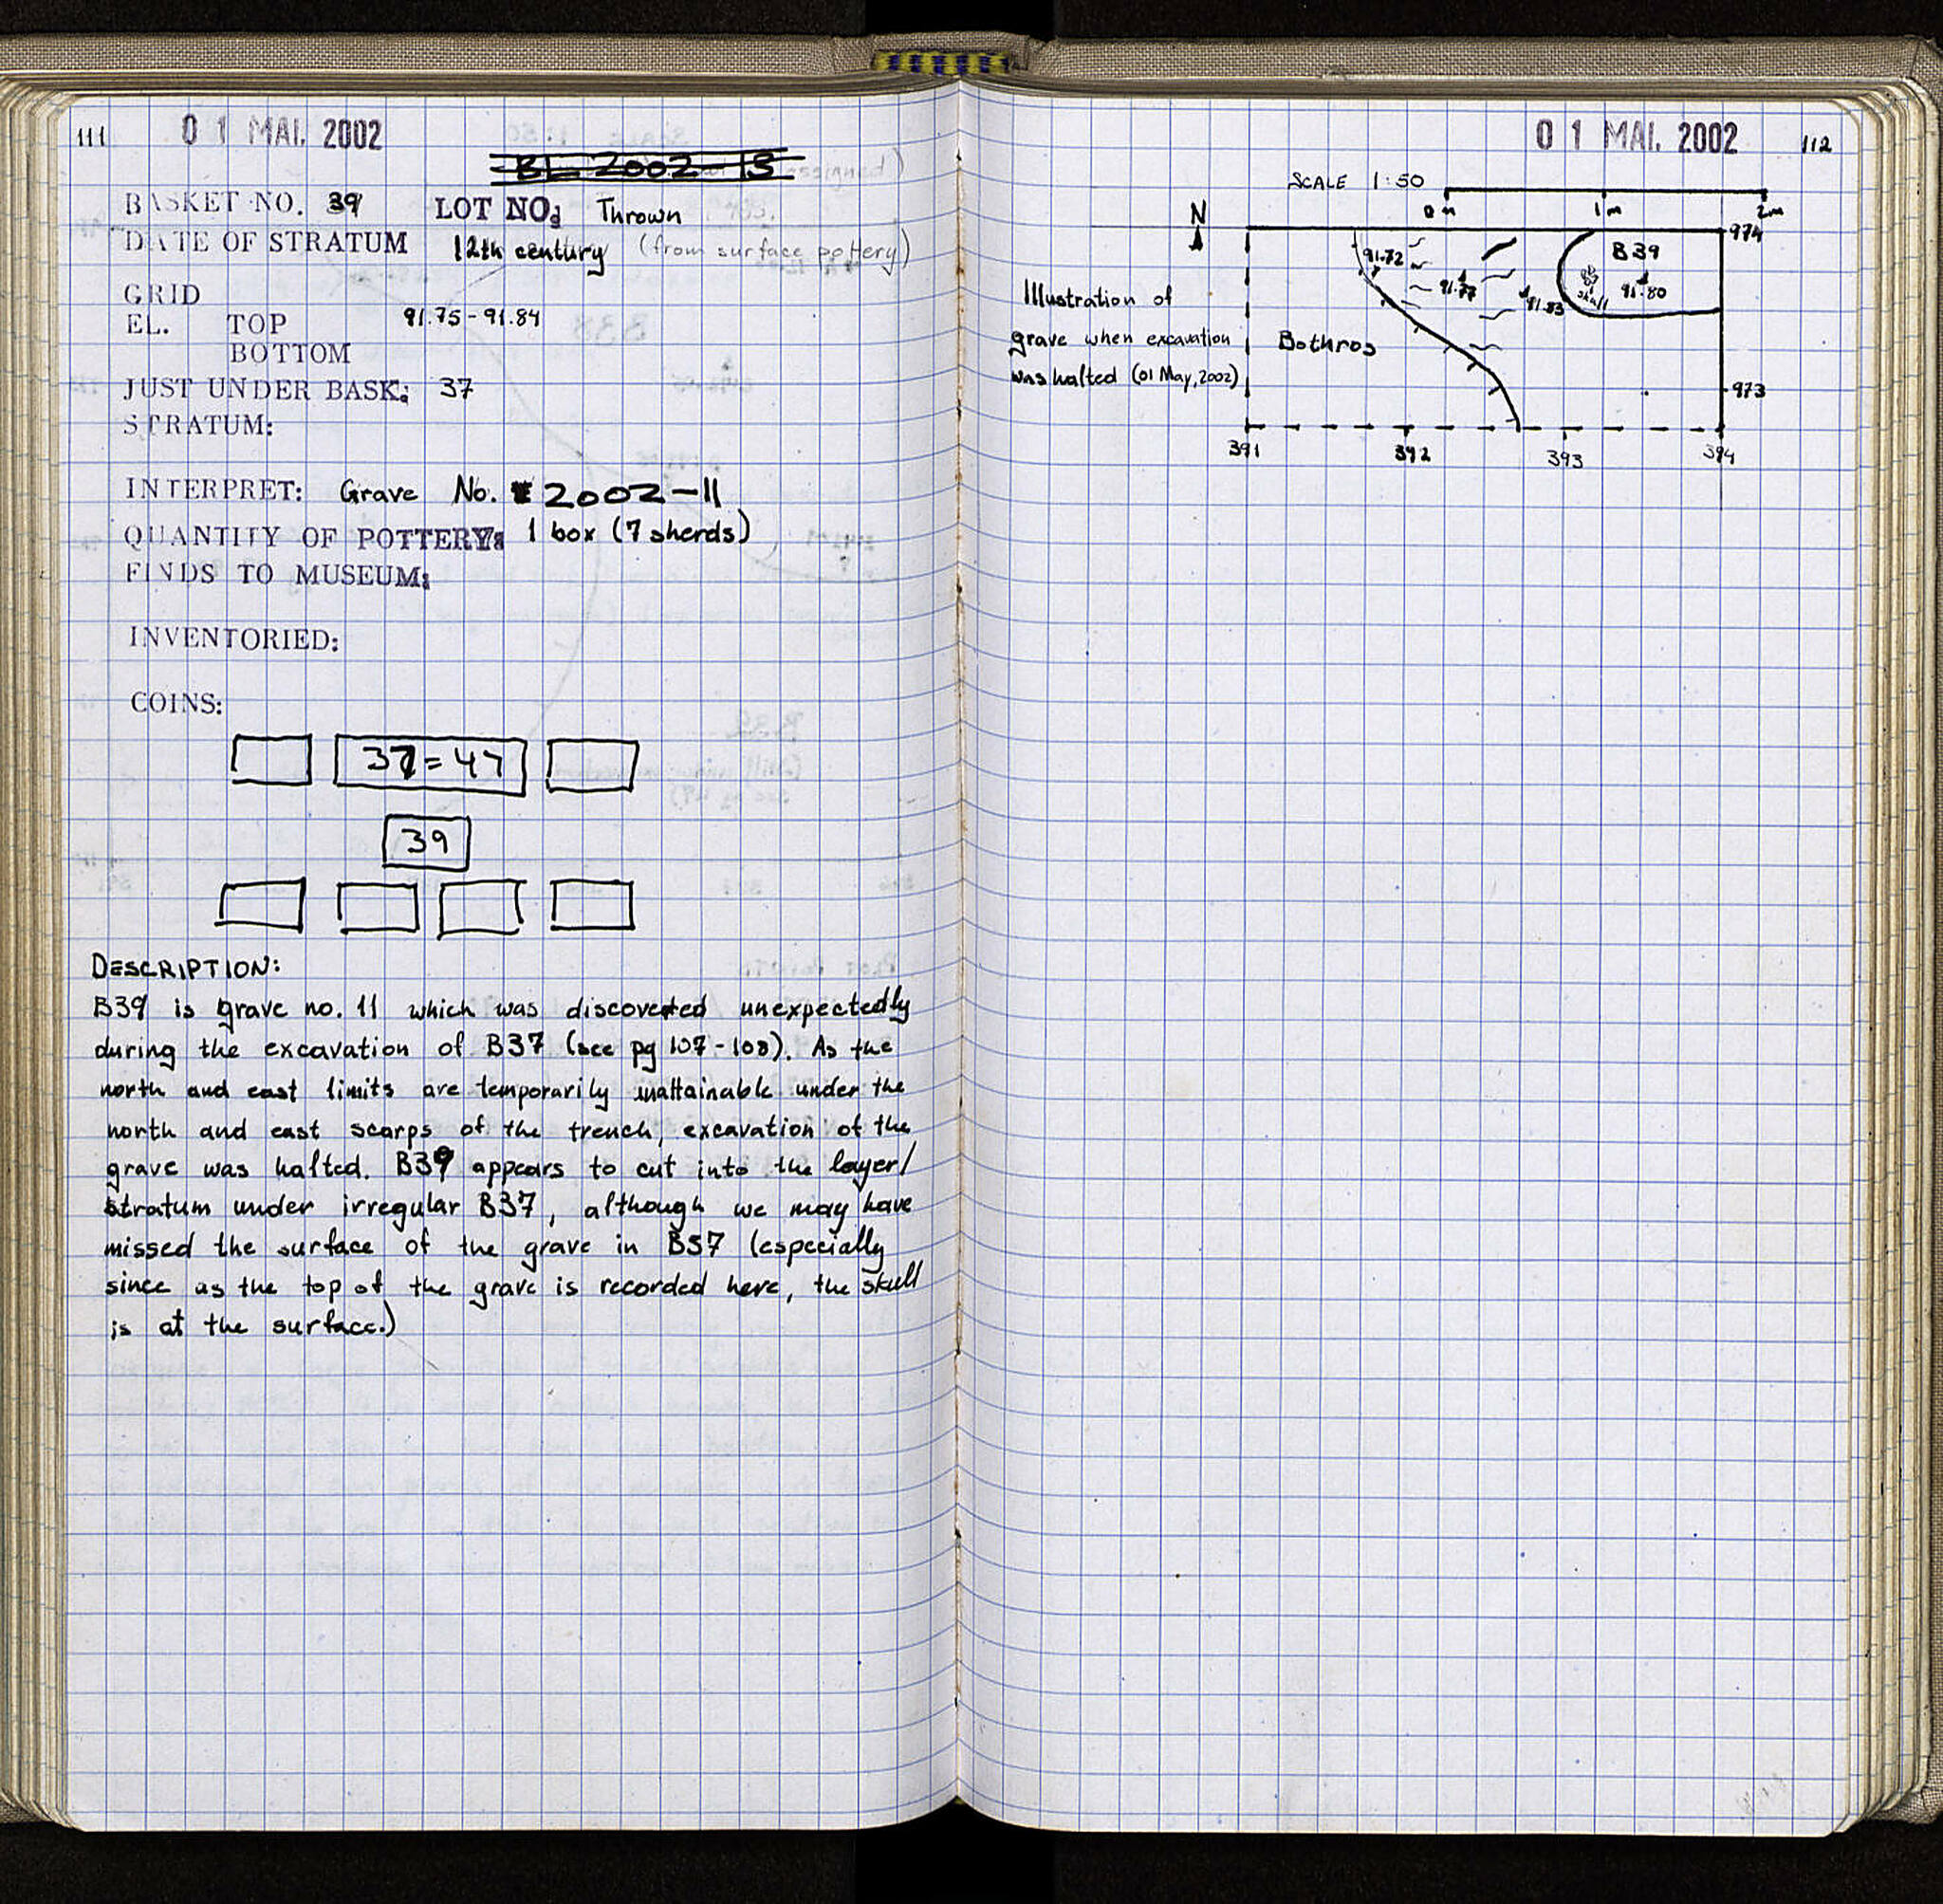 111
01 MAI. 2002
BL 2002 13
BASKET NO. 39 LOT NO: Thrown
DATE OF STRATUM 12th century (from surface pottery)
GRID
EL. TOP 91.75-91.84
BOTTOM
JUST UNDER BASK: 37
STRATUM:
INTERPRET: Grave No. 2002-11
QUANTITY OF POTTERY: 1 box (7 sherds)
FINDS TO MUSEUM:
INVENTORIED:
COINS:
37=47
39
DESCRIPTION:
B39 is grave no. 11 which was discovered unexpectedly
during the excavation of B37 (see pg 107-108). As the
north and east limits are temporarily unattainable under the
north and east scarps of the trench, excavation of the
grave was halted. B39 appears to cut into the layer/
stratum under irregular B37, although we may have
missed the surface of the grave in B37 (especially
since as the top of the grave is recorded here, the skull
is at the surface.)
01 MAI. 2002
112
SCALE 1:50
0m 1m 2m
N
974
91.72
91.77
91.83
B39
skull
91.80
Illustration of
grave when excavation
was halted (01 May, 2002)
Bothros
973
391 392 393 394